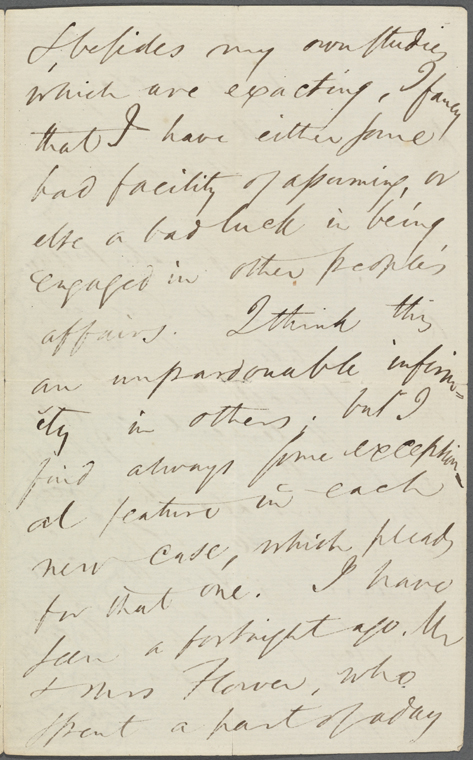 & besides my own studies
which are exacting, I fancy
that I have either some
bad facility of assuming, or
else a bad luck in being
engaged in other people's
affairs. I think this
an unpardonable infirm=
ity in others; but I
find always some exception-
al feature in each
new case, which pleads
for that one. I have
seen a fortnight ago, Mr
& Mrs Flower, who
spent a part of a day